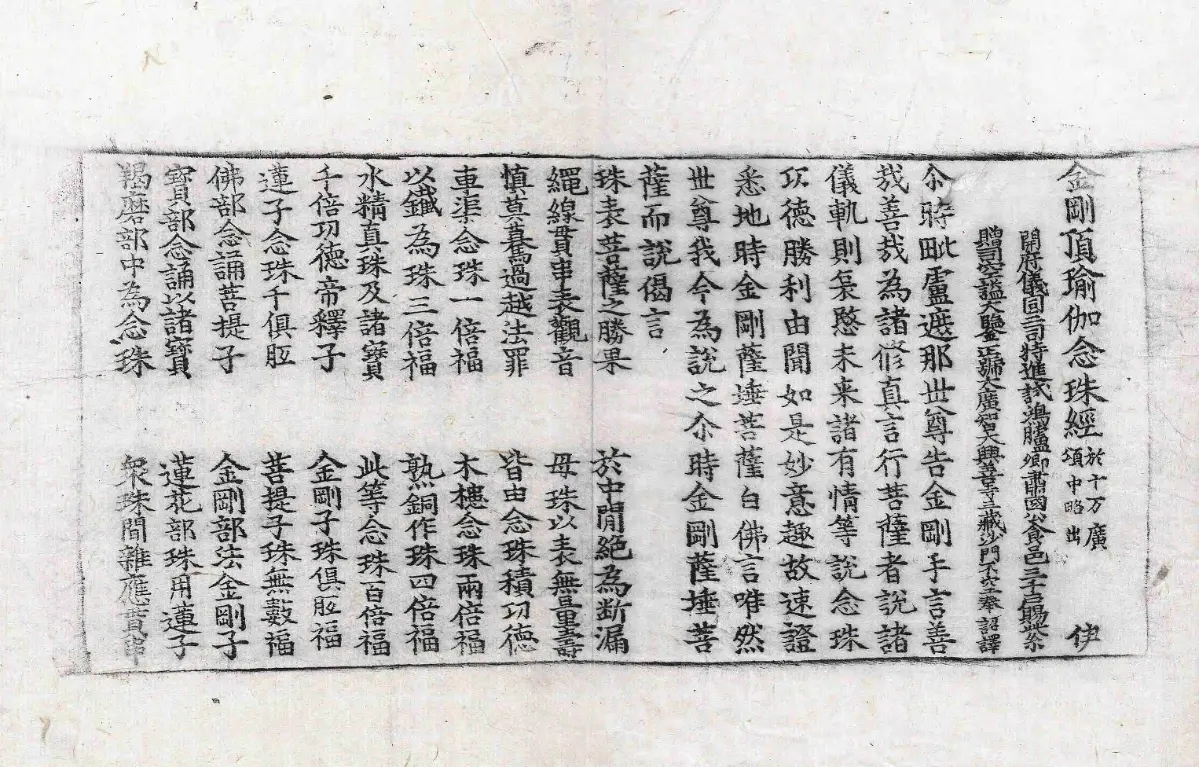 金剛頂瑜伽念珠經 於十万廣頌中略出 伊
開府儀同三司特進試鴻臚卿肅國公食邑三千戶賜紫
贈司空謚大鑒正號大廣智大興善寺三藏沙門不空奉 詔譯
尒時毗盧遮那世尊告金剛手言善
哉善哉為諸修真言行菩薩者說諸
儀軌則哀愍未来諸有情等說念珠
功德勝利由聞如是妙意趣故速證
悉地時金剛薩埵菩薩白佛言唯然
世尊我今為說之尒時金剛薩埵菩
薩而說偈言
珠表菩薩之勝果 於中間絕為断漏
繩線貫串表觀音 母珠以表無量壽
慎莫驀過越法罪 皆由念珠積功德
車渠念珠一倍福 木槵念珠兩倍福
以鐵為珠三倍福 熟銅作珠四倍福
水精真珠及諸寶 此等念珠百倍福
千倍功德帝釋子 金剛子珠俱胝福
蓮子念珠千俱胝 菩提子珠無數福
佛部念誦菩提子 金剛部法金剛子
寶部念誦以諸寶 蓮花部珠用蓮子
羯磨部中為念珠 衆珠間雜應貫串